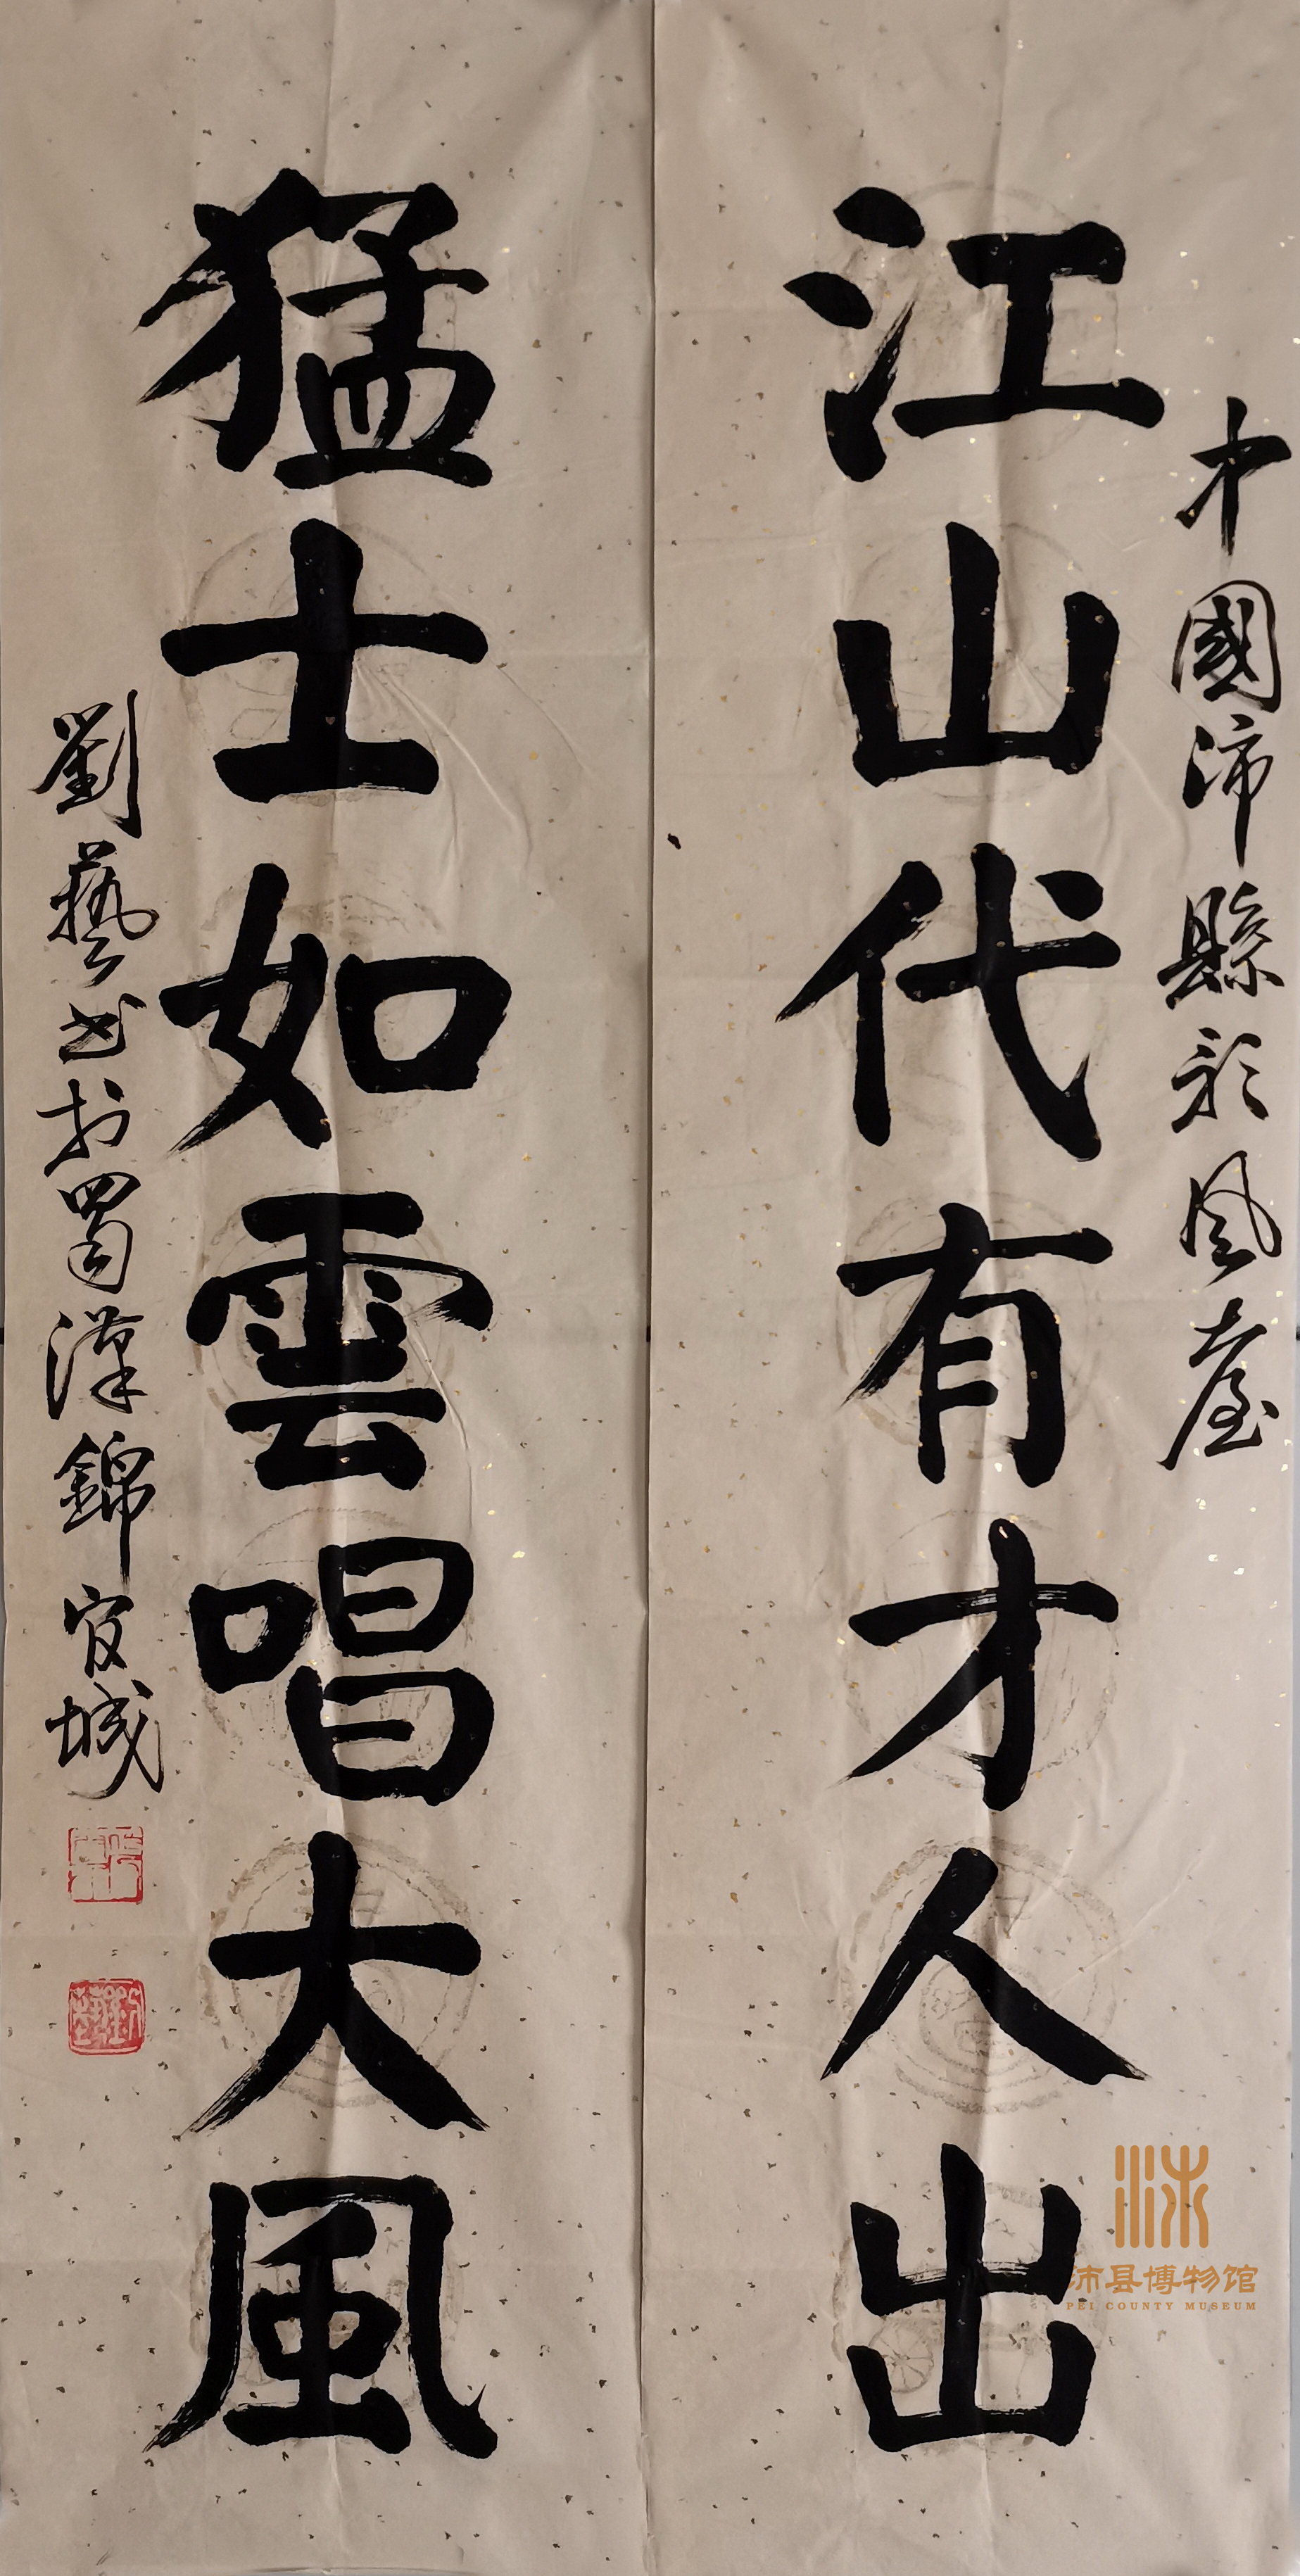 中國沛縣歌風臺
江山代有才人出
猛士如雲唱大風
劉藝書於蜀漢錦官城
沛县博物馆
PEI COUNTY MUSEUM